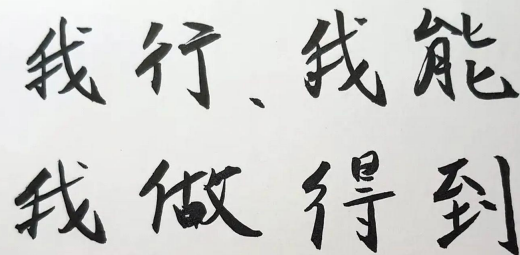 我行、我能
我做得到